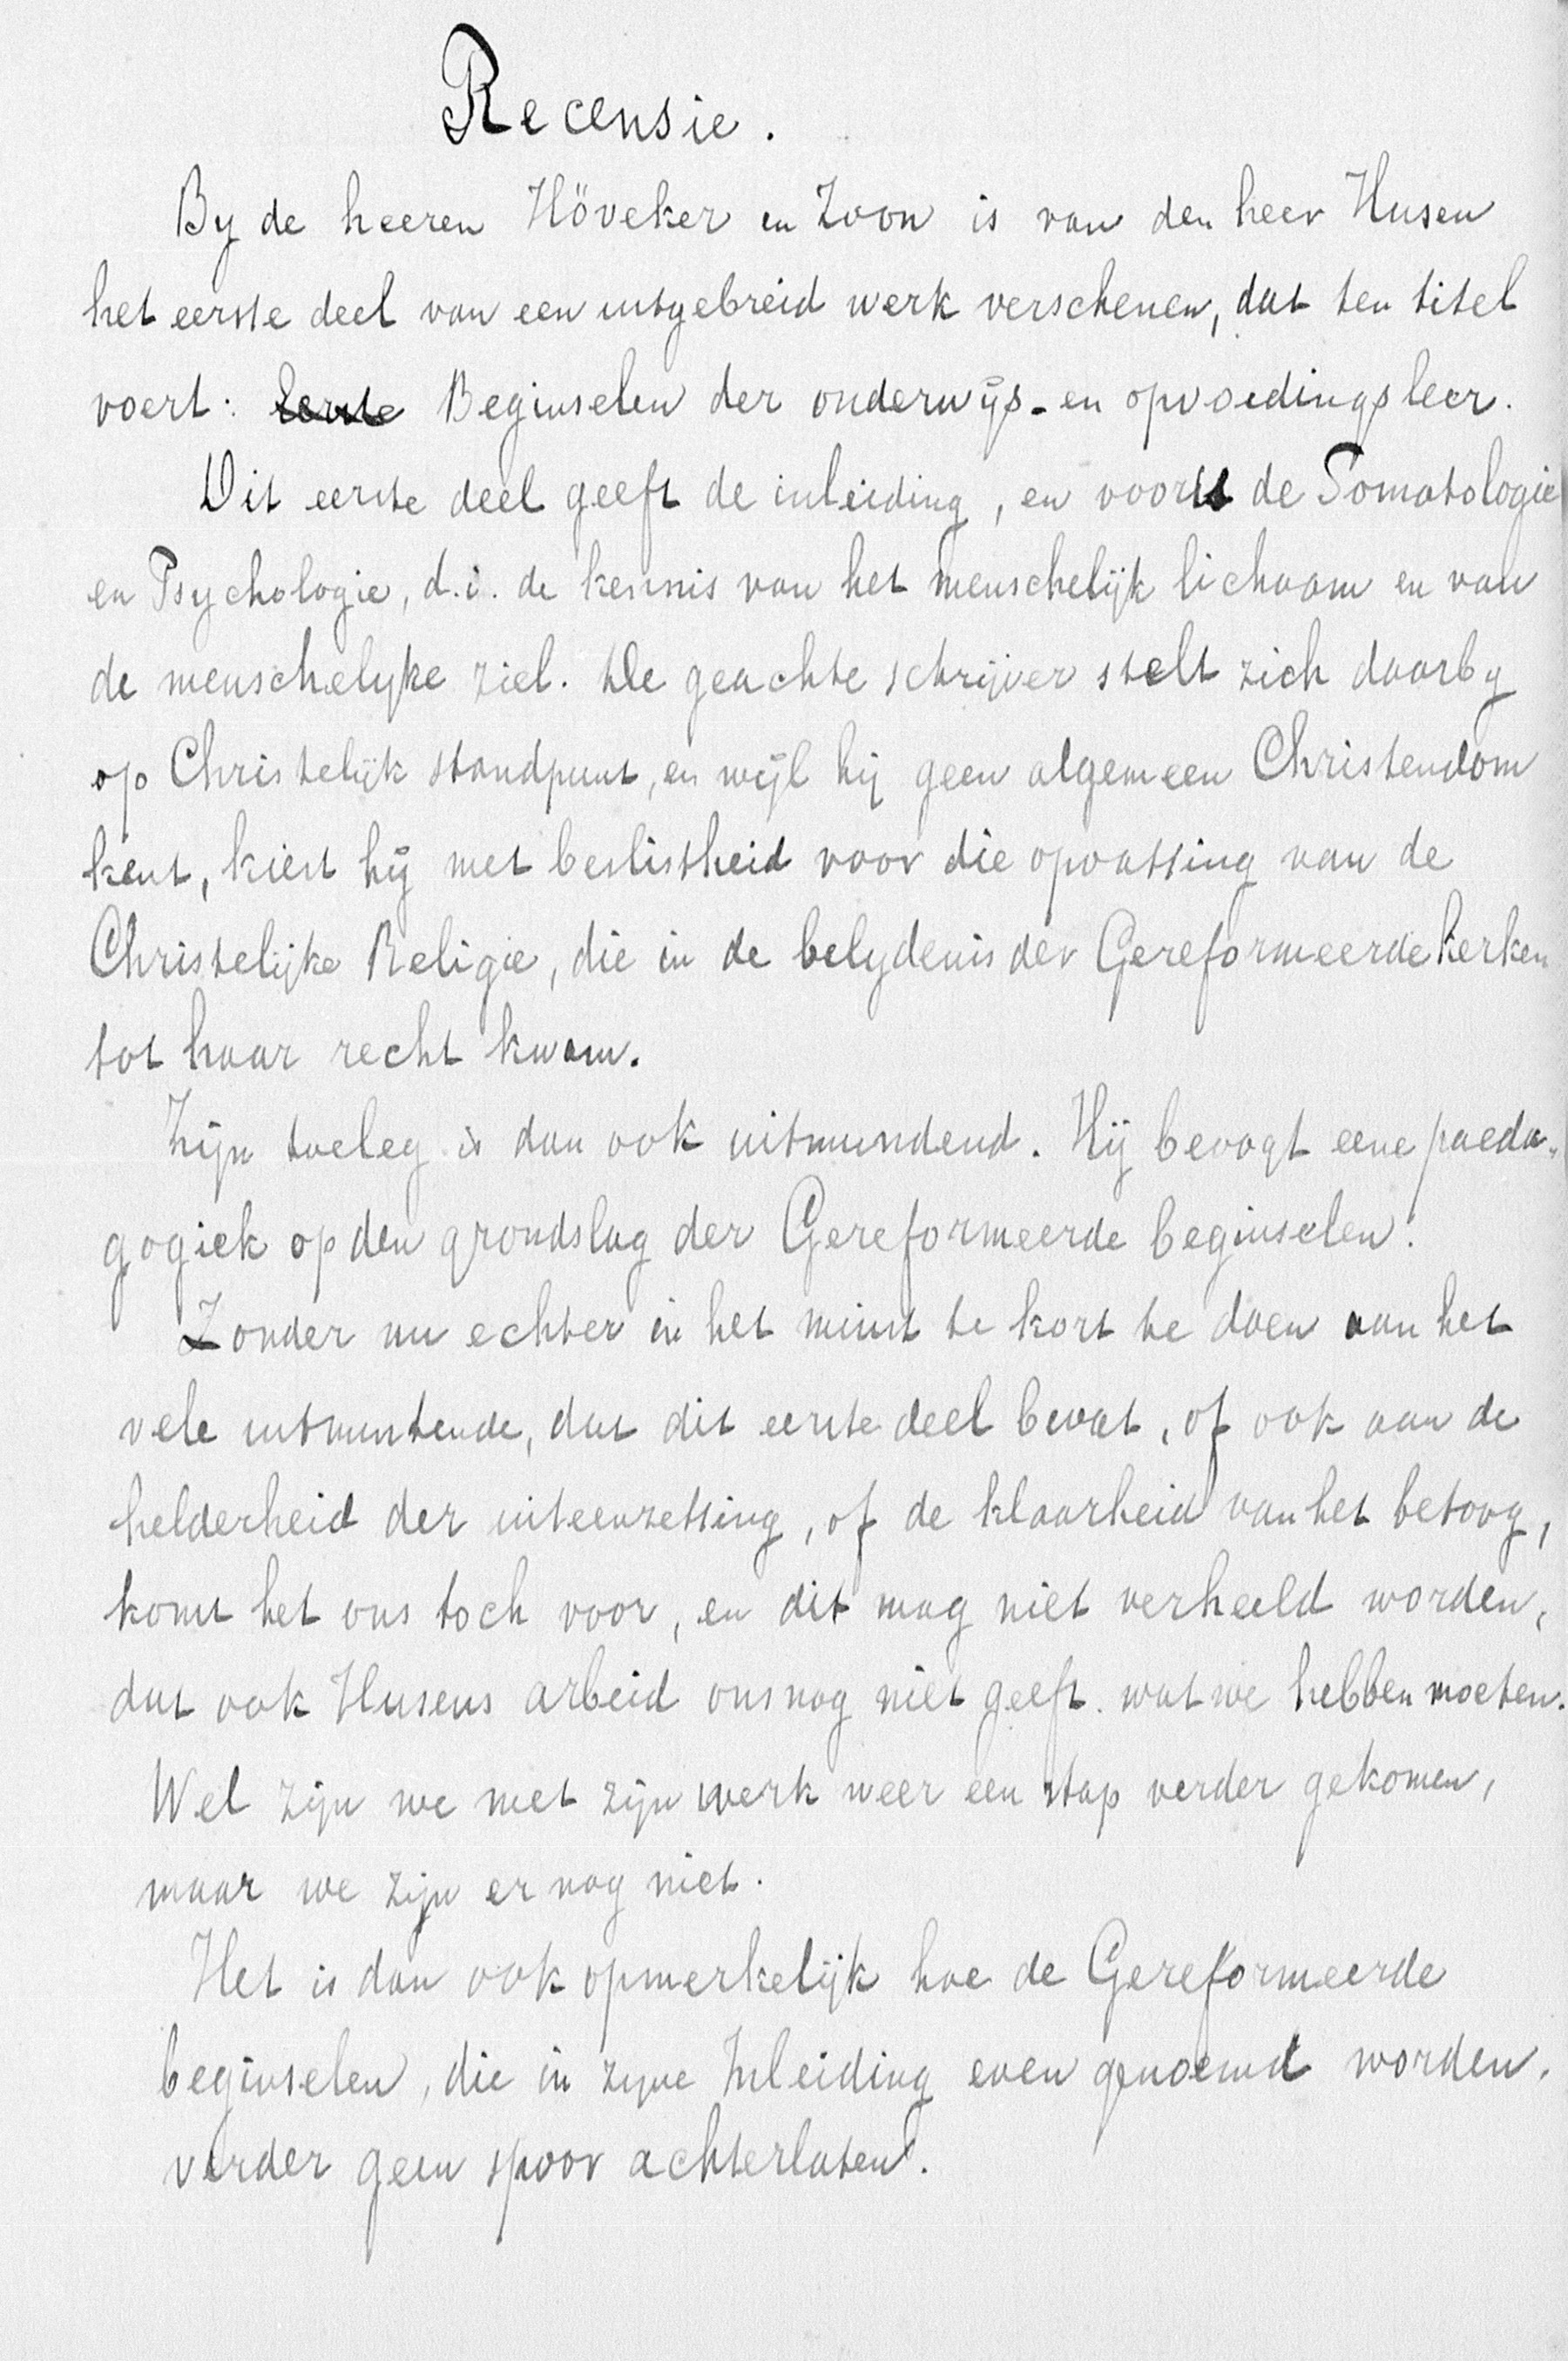 Recensie.
By de heeren Höveker en Zoon is van den heer Husen
het eerste deel van een uitgebreid werk verschenen, dat ten titel
voert: Eerste Beginselen der onderwijs- en opvoedingsleer.
Dit eerste deel geeft de inleiding, en voorts de Somatologie
en Psychologie, d.i. de kennis van het menschelijk lichaam en van
de menschelyke ziel. De geachte schrijver stelt zich daarby
op Christelijk standpunt, en wijl hij geen algemeen Christendom
kent, kiest hij met beslistheid voor die opvatting van de
Christelijke Religie, die in de belydenis der Gereformeerde kerken
tot haar recht kwam.
Zijn toeleg is dan ook uitmundend. Hij beoogt eene paeda-
gogiek op den grondslag der Gereformeerde beginselen.
Zonder nu echter in het minst te kort te doen aan het
vele uitmuntende, dat dit eerste deel bevat, of ook aan de
helderheid der uiteenzetting, of de klaarheid van het betoog,
komt het ons toch voor, en dit mag niet verheeld worden,
dat ook Husens arbeid ons nog niet geeft. wat we hebben moeten.
Wel zijn we met zijn werk weer een stap verder gekomen,
maar we zijn er nog niet.
Het is dan ook opmerkelijk hoe de Gereformeerde
beginselen, die in zyne Inleiding even genoemd worden,
verder geen spoor achterlaten.